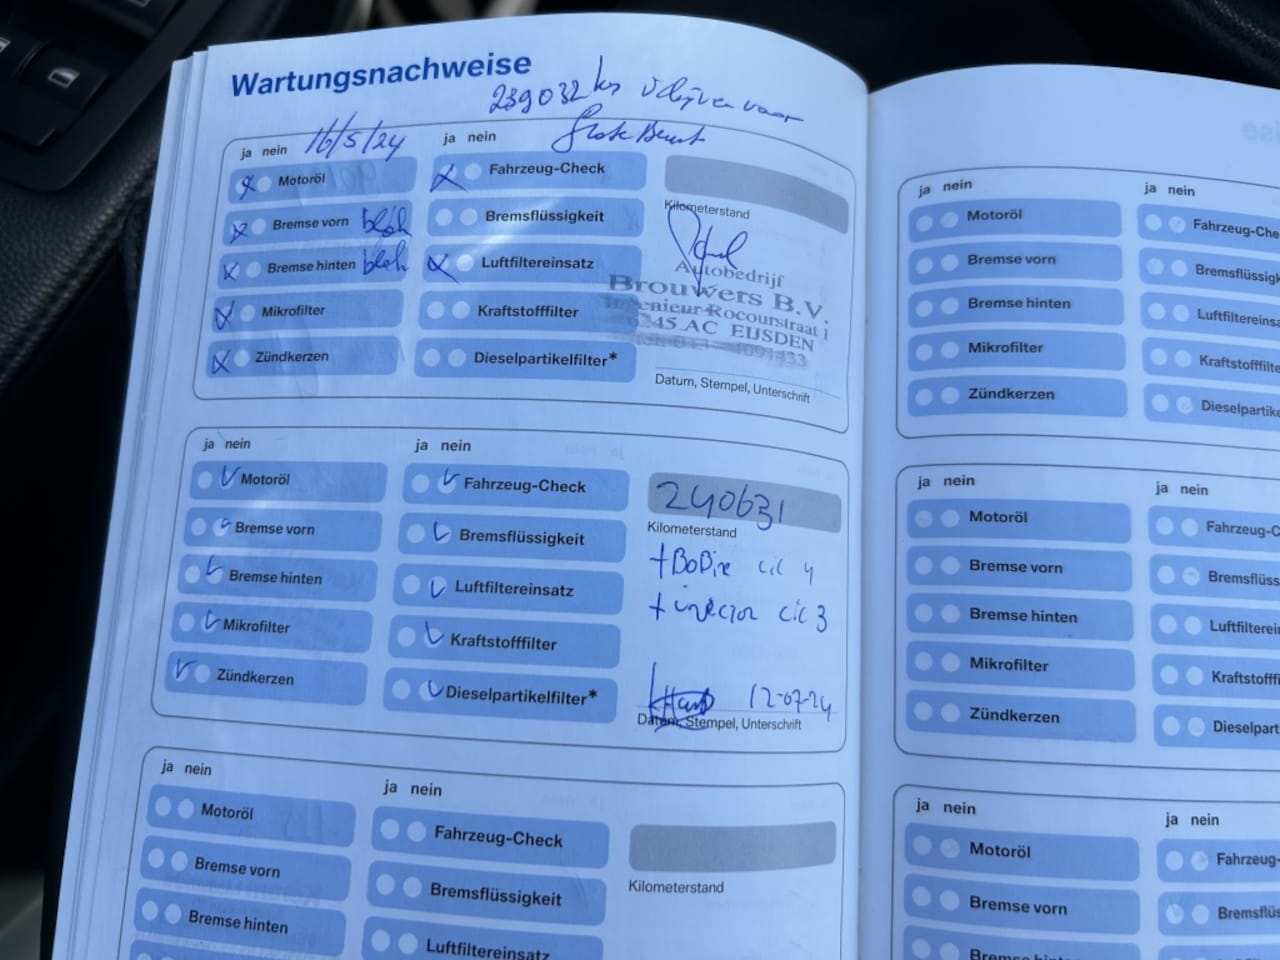 Wartungsnachweise
239032 km
16/5/24
Grote Beurt
ja nein
ja nein
Motoröl
Fahrzeug-Check
Bremse vorn
Bremsflüssigkeit
Kilometerstand
Bremse hinten
Luftfiltereinsatz
Mikrofilter
Kraftstofffilter
Zündkerzen
Dieselpartikelfilter*
Autobedrijf
Brouwers B.V.
Ingenieur Rocourstraat 1
6245 AC EIJSDEN
4091433
Datum, Stempel, Unterschrift
ja nein
ja nein
Motoröl
Fahrzeug-Check
240631
Bremse vorn
Bremsflüssigkeit
Kilometerstand
Bremse hinten
Luftfiltereinsatz
+ BoBine cil 4
Mikrofilter
Kraftstofffilter
+ injector cil 3
Zündkerzen
Dieselpartikelfilter*
12-07-24
Datum, Stempel, Unterschrift
ja nein
ja nein
Motoröl
Fahrzeug-Check
Bremse vorn
Bremsflüssigkeit
Kilometerstand
Bremse hinten
Luftfiltereinsatz
ja nein
ja nein
Motoröl
Fahrzeug-Che
Bremse vorn
Bremsflüssigk
Bremse hinten
Luftfiltereinsa
Mikrofilter
Kraftstofffilte
Zündkerzen
Dieselpartike
ja nein
ja nein
Motoröl
Fahrzeug-C
Bremse vorn
Bremsflüss
Bremse hinten
Luftfilterei
Mikrofilter
Kraftstofff
Zündkerzen
Dieselpar
ja nein
ja nein
Motoröl
Fahrzeug-
Bremse vorn
Bremsflüs
Bremse hinten